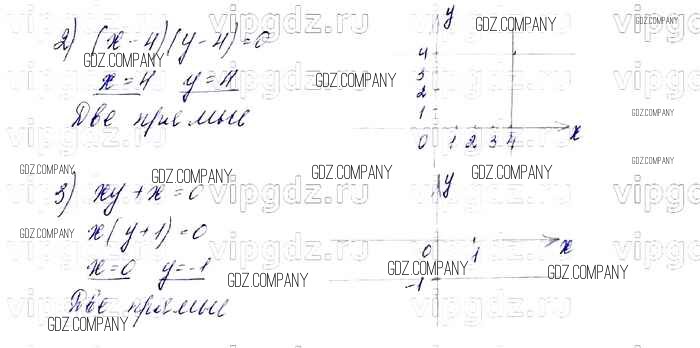 2) (x-4)(y-4)=0
x=4 y=4
Две прямые
y
4
3
2
1
0 1 2 3 4 x
3) xy+x=0
x(y+1)=0
x=0 y=-1
Две прямые
y
0 1 x
-1
GDZ.COMPANY
GDZ.COMPANY
GDZ.COMPANY
GDZ.COMPANY
GDZ.COMPANY
GDZ.COMPANY
GDZ.COMPANY
GDZ.COMPANY
GDZ.COMPANY
GDZ.COMPANY
GDZ.COMPANY
GDZ.COMPANY
GDZ.COMPANY
GDZ.COMPANY
GDZ.COMPANY
vipgdz.ru
vipgdz.ru
vipgdz.ru
vipgdz.ru